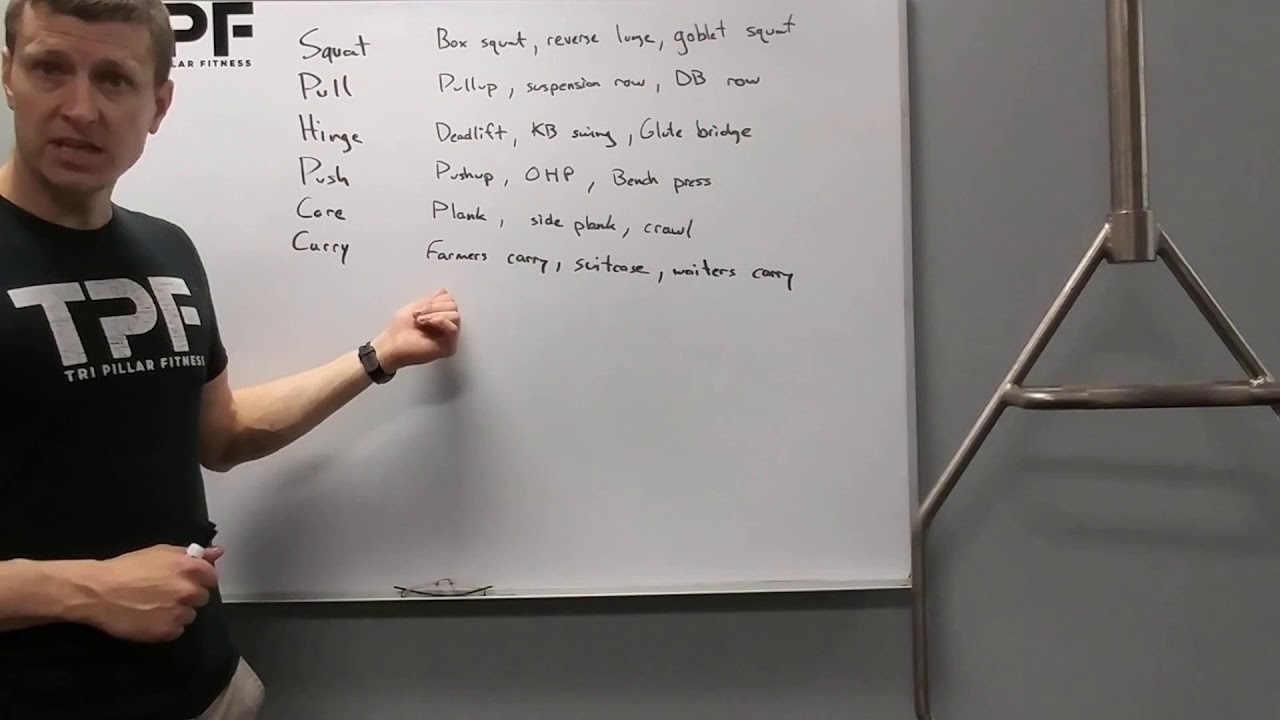 TPF
LAR FITNESS
Squat Box squat, reverse lunge, goblet squat
Pull Pullup, suspension row, DB row
Hinge Deadlift, KB swing, Glute bridge
Push Pushup, OHP, Bench press
Core Plank, side plank, crawl
Carry Farmers carry, suitcase, waiters carry
TPF
TRI PILLAR FITNESS